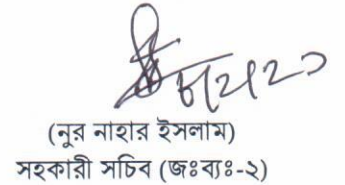 (নুর নাহার ইসলাম)
সহকারী সচিব (জঃব্যঃ-২)